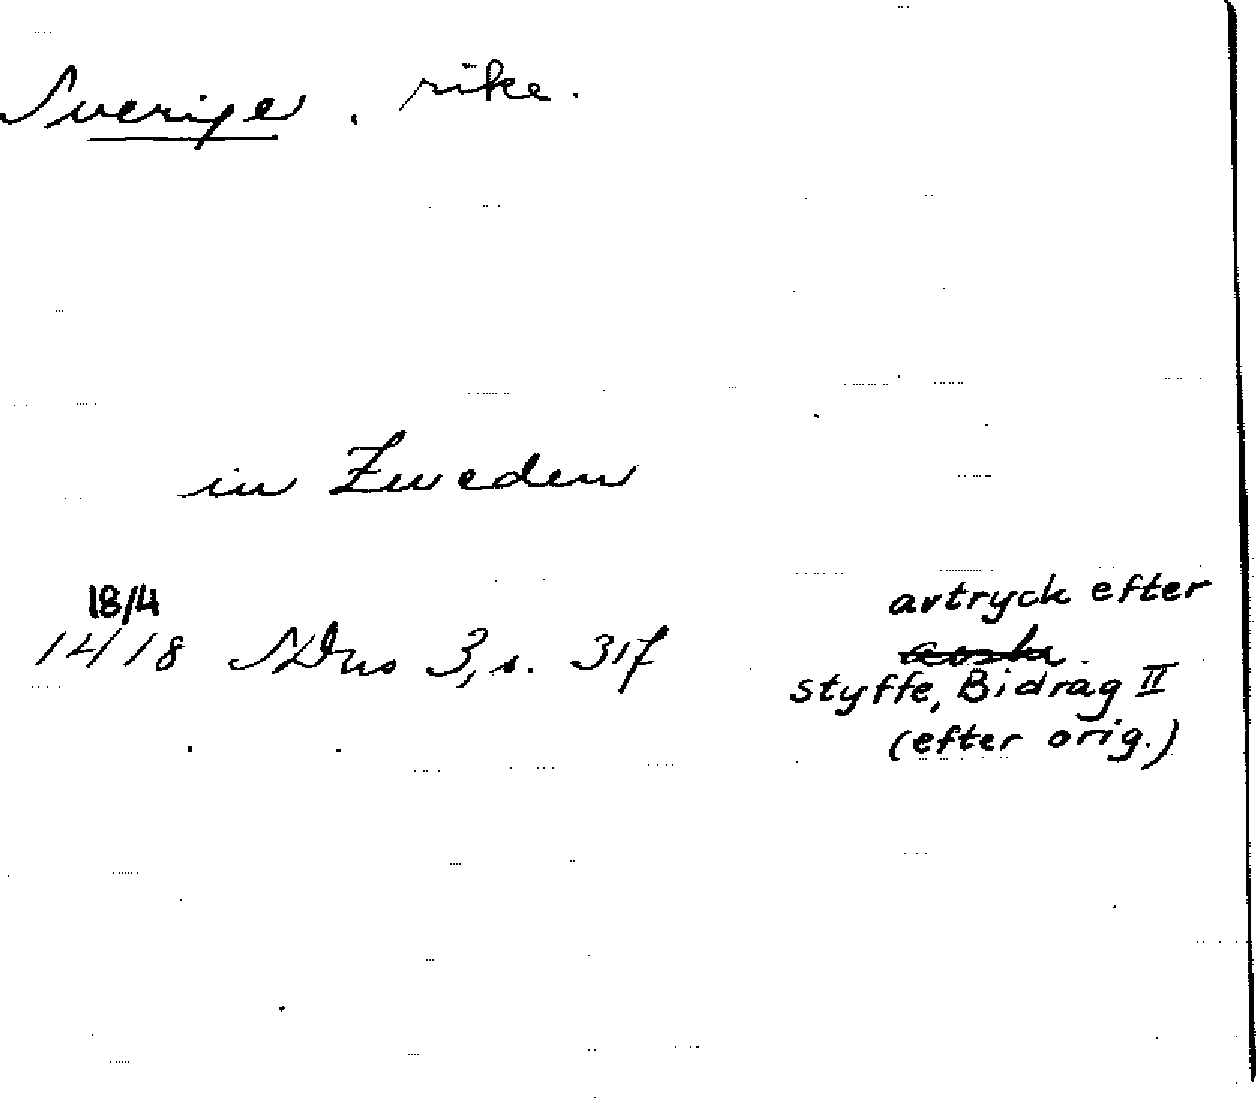 Sverige. rike.
in Zweden
18/4
1418 SDns 3, s. 317
avtryck efter
styffe, Bidrag II
(efter orig.)